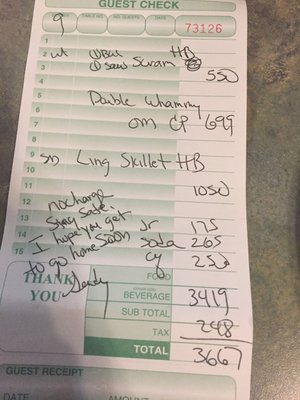 GUEST CHECK
TABLE NO. NO. GUESTS DATE
9 73126
1
2 wt ① Bw HB
3 ① saus Swan
4 550
5 Double Whammy
6
7 om CP 699
8
9 sm Ling Skillet HB
10
11 1050
12 no charge
13 Stay safe.
14 I hope you get Jr 175
15 home soon soda 265
to go 250
Sandy
THANK YOU
FOOD
BEVERAGE 3419
SUB TOTAL
TAX 248
TOTAL 3667
GUEST RECEIPT
DATE AMOUNT